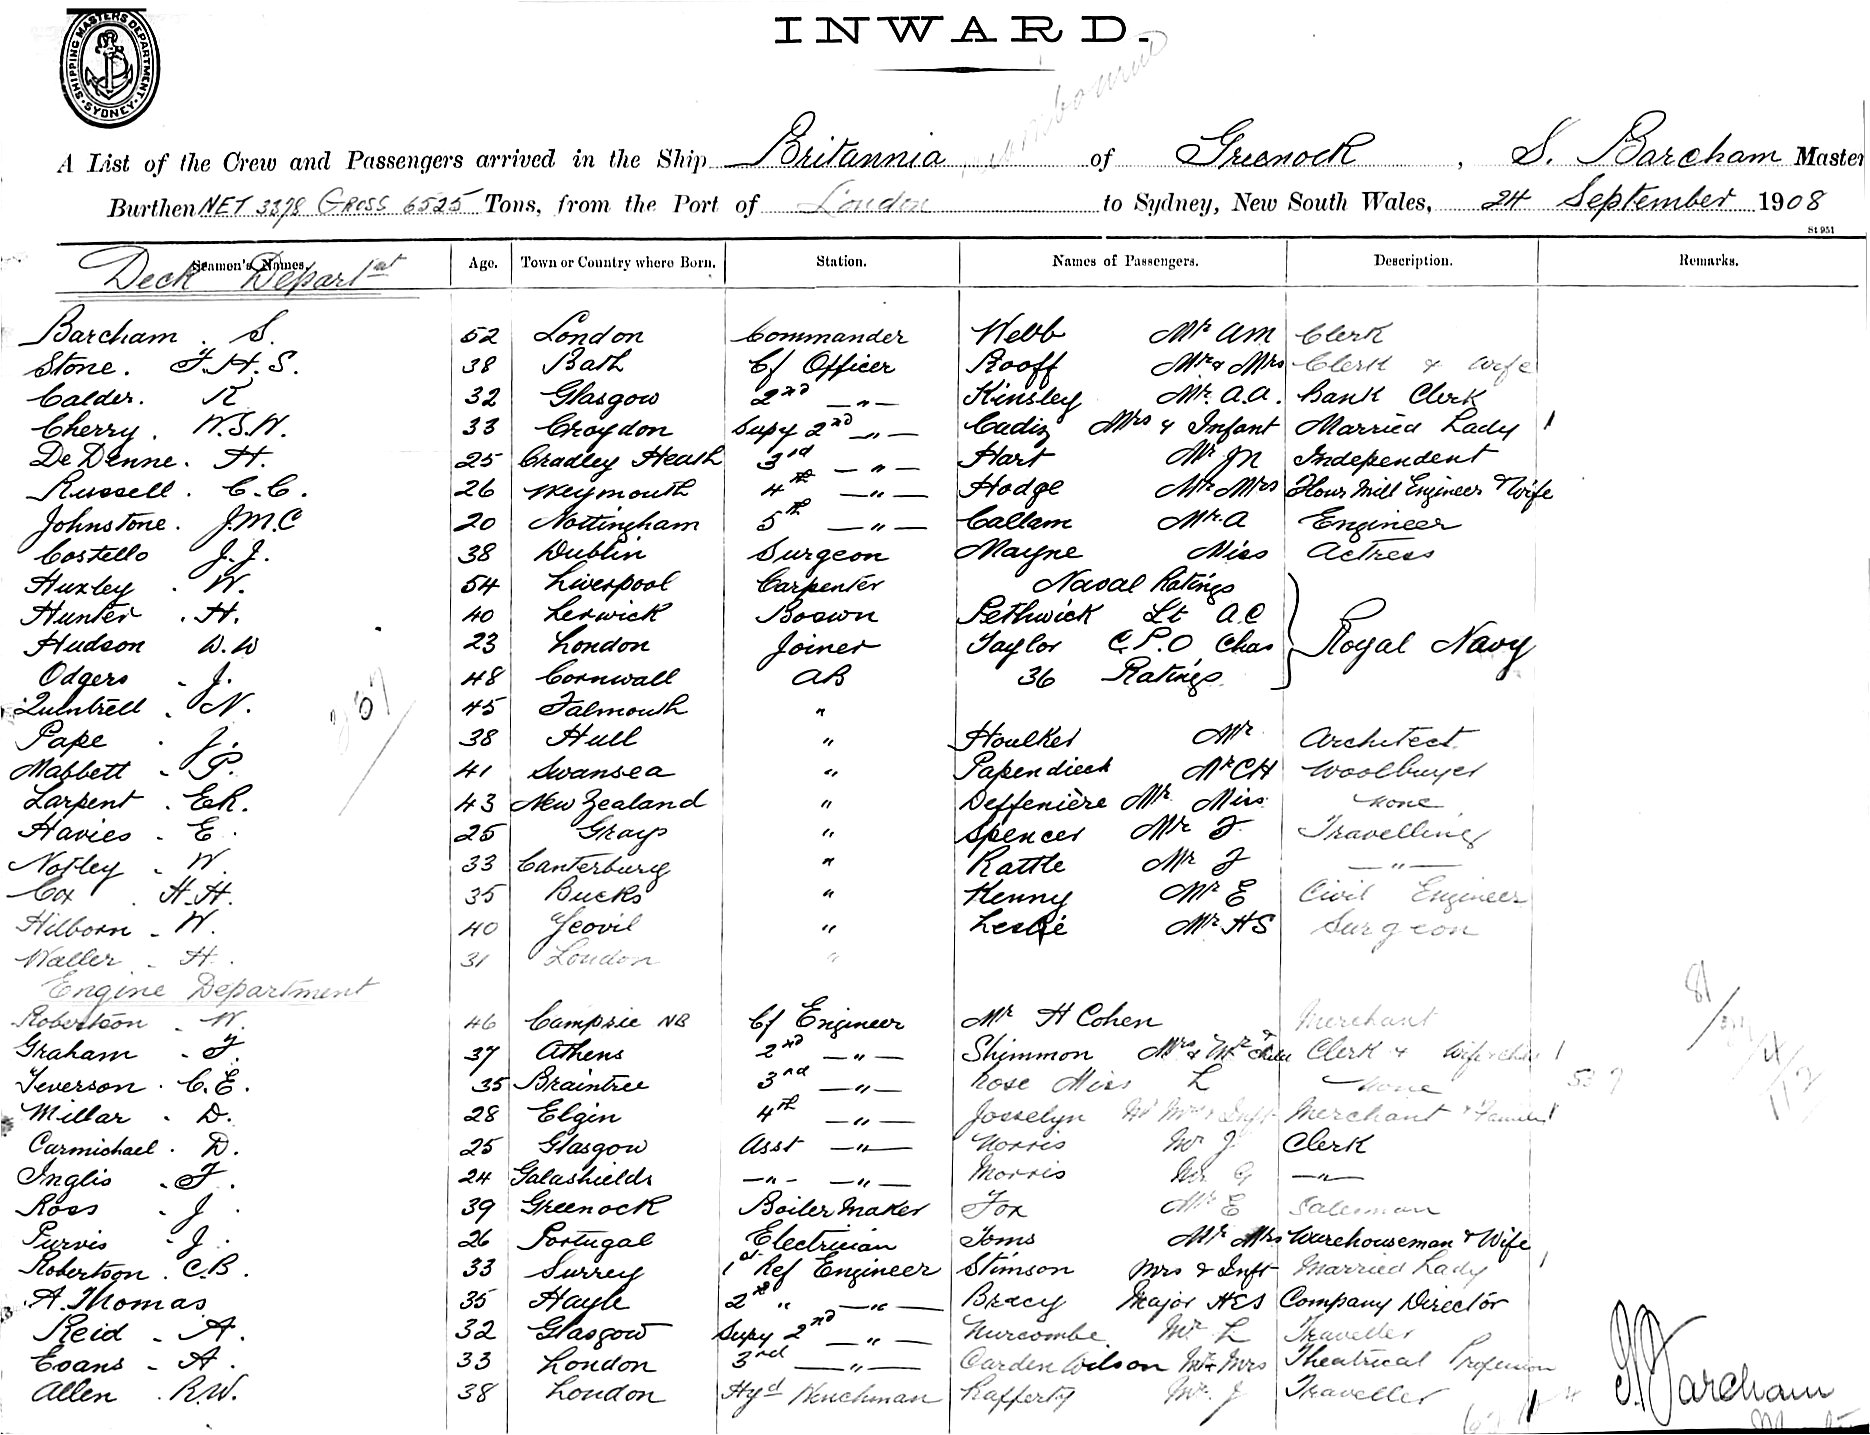 SHIPPING MASTERS DEPARTMENT · SYDNEY ·
INWARD.
A List of the Crew and Passengers arrived in the Ship Britannia of Greenock, S. Barcham Master
Burthen NET 3378 GROSS 6525 Tons, from the Port of London to Sydney, New South Wales, 24 September 1908
St 951
Seamen's Names. Age. Town or Country where Born. Station. Names of Passengers. Description. Remarks.
Deck Depart
Barcham. S. 52 London Commander Webb Mr AM Clerk
Stone. F.H.S. 38 Bath Cf Officer Rooff Mr & Mrs Clerk & Wife
Calder. R 32 Glasgow 2nd —"— Kinsley Mr. A.A. Bank Clerk
Cherry. W.S.W. 33 Croydon Supy 2nd —"— Cadiz Mrs & Infant Married Lady 1
De Denne. H. 25 Cradley Heath 3rd —"— Hart Mr JN Independent
Russell. C.C. 26 Weymouth 4th —"— Hodge Mr Mrs Flour Mill Engineer & Wife
Johnstone. J.M.C 20 Nottingham 5th —"— Callam Mr. A Engineer
Costello J.J. 38 Dublin Surgeon Mayne Miss Actress
Huxley. W. 54 Liverpool Carpenter Naval Ratings
Hunter. H. 40 Lerwick Boswn Pethwick Lt A.C
Hudson W.W 23 London Joiner Taylor C.P.O Chas Royal Navy
Odgers - J. 48 Cornwall AB 36 Ratings
Quintrell - N. 45 Falmouth "
Pape. J. 38 Hull " Houlker Mr. Architect
Mabbett - P. 41 Swansea " Papendieck Mr CH Woolbuyer
Larpent. E.R. 43 New Zealand " Deffenière Mr. Miss none
Havies - E. 25 Grays " Spencer Mr F. Travelling
Notley - W. 33 Canterbury " Rattle Mr F —"—
Cox. H.H. 35 Bucks " Kenny Mr E Civil Engineer
Hilborn - W. 40 Yeovil " Leslie Mr HS Surgeon
Waller - H. 31 London "
Engine Department
Robertson - W. 46 Campsie NB Cf Engineer Mr H Cohen Merchant
Graham - F. 37 Athens 2nd —"— Shimmon Mrs & Mr Clerk & Wife 1
Teverson. C.E. 35 Braintree 3rd —"— Rose Miss L none
Millar - D. 28 Elgin 4th —"— Josselyn Mr Mrs & Inft Merchant & Family
Carmichael. D. 25 Glasgow Asst —"— Norris Mr J Clerk
Inglis - F. 24 Galashields —"— —"— Morris Mr G —"—
Ross - J. 39 Greenock Boiler Maker Fox Mr E Salesman
Purvis - J. 26 Portugal Electrician Toms Mr Mrs Warehouseman & Wife
Robertson. C.B. 33 Surrey 1st Ref Engineer Stimson Mrs & Inft Married Lady 1
A. Thomas 35 Hayle 2nd " —"— Bracy Major HES Company Director
Reid - A. 32 Glasgow Supy 2nd —"— Nurcombe Mr. L Traveller
Evans - A. 33 London 3rd —"— Carden Wilson Mr & Mrs Theatrical Profession
Allen. R.W. 38 London Hyd Wenchman Rafferty Mr. J Traveller
Barcham